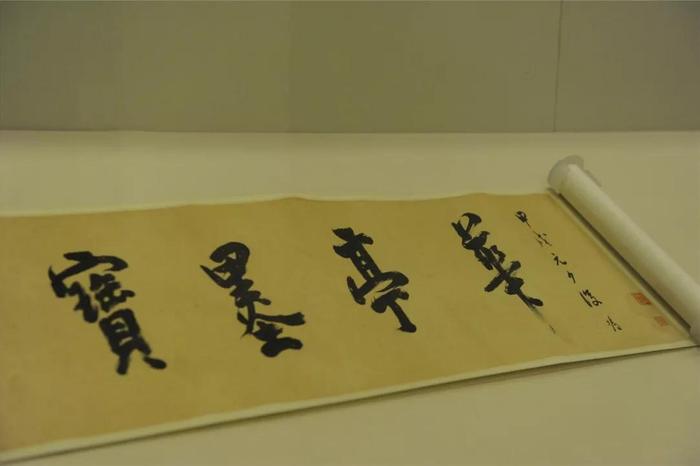 華亭墨寶
甲戌元夕